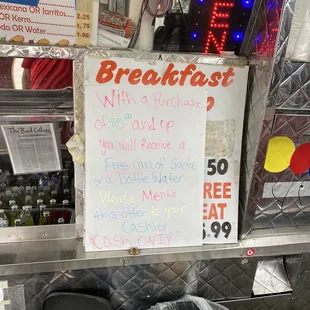 Mexicana OR Jarritos
OR Kerns
oda OR Water
2.25
2.50
4.
EN
Breakfast
With a Purchase
of and up
you will Receive a
Free can of Soda
or a bottle Water
Please Mention
this offer to your
Cashier
CASH ONLY
50
REE
EAT
.99